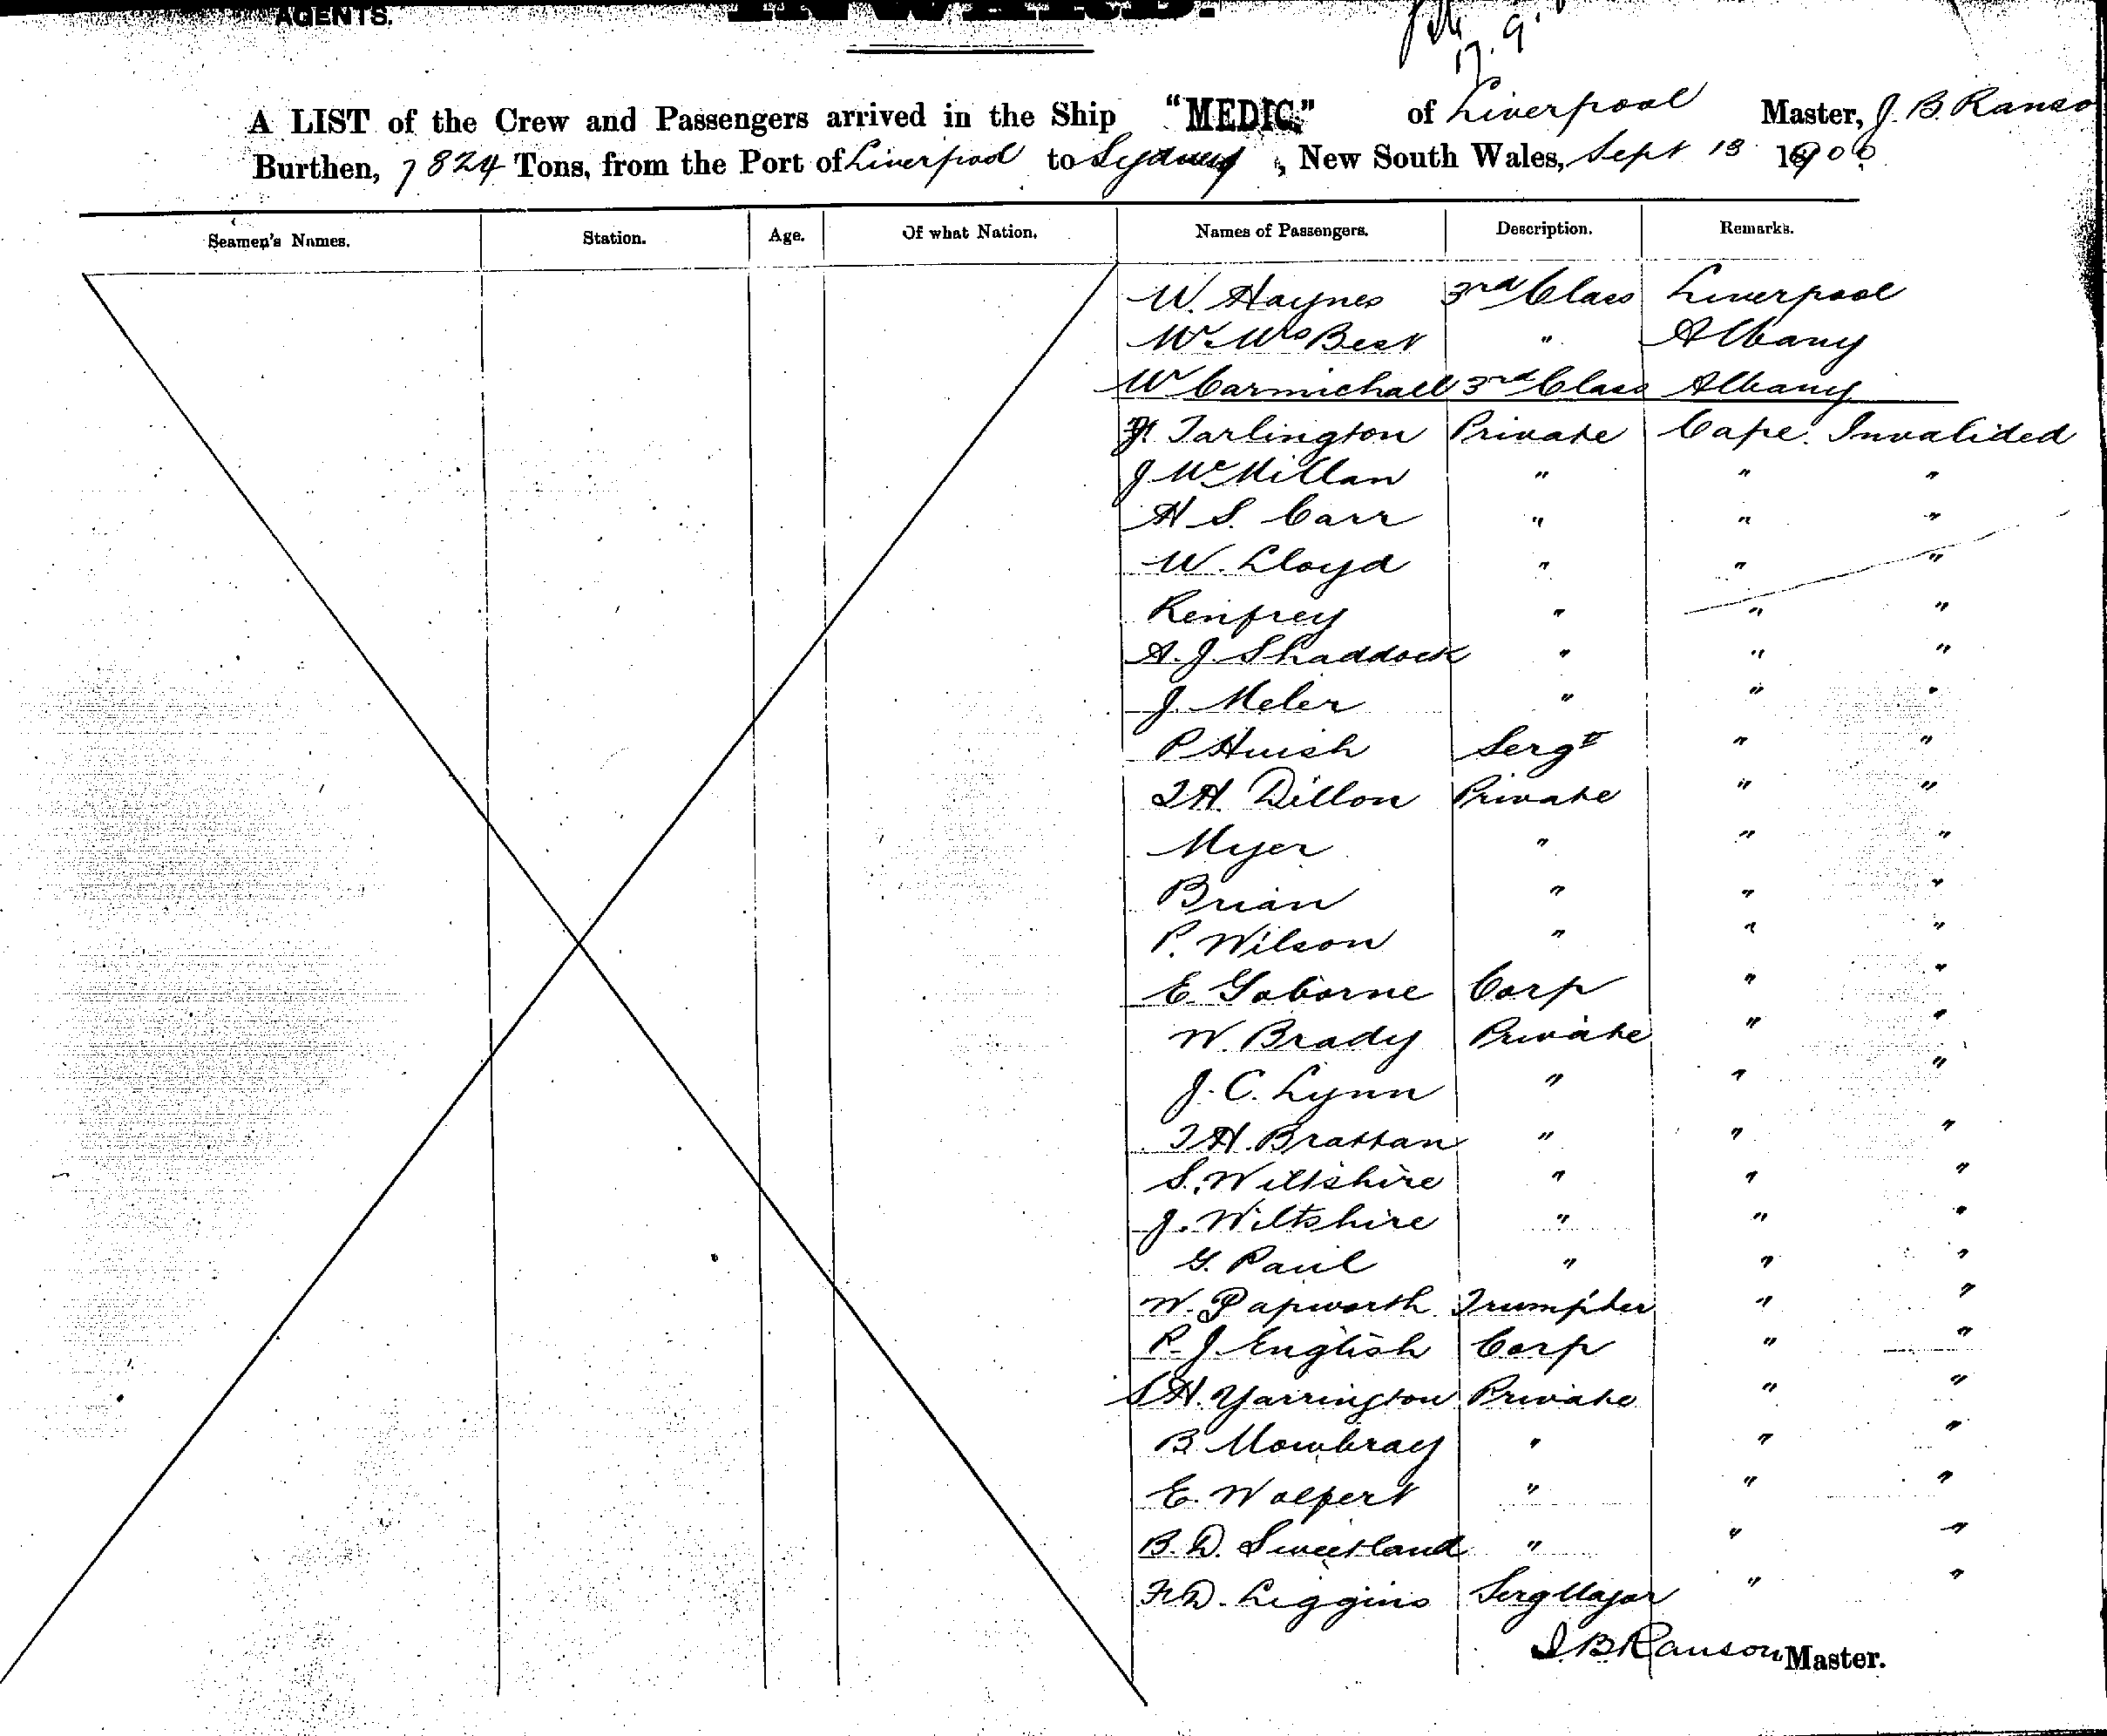 AGENTS.
INWARD.
17.9.
A LIST of the Crew and Passengers arrived in the Ship "MEDIC," of Liverpool Master, J. B. Ranso
Burthen, 7824 Tons, from the Port of Liverpool to Sydney, New South Wales, Sept 13 1900
Seamen's Names. Station. Age. Of what Nation. Names of Passengers. Description. Remarks.
W. Haynes 3rd Class Liverpool
Mr Mrs Best " Albany
W Carmichall 3rd Class Albany
Tarlington Private Cape. Invalided
J McMillan " " "
H S. Carr " " "
W. Lloyd " " "
Renfrey " " "
A. J. Shaddock " " "
J. Meler " " "
P Huish Sergt " "
T H. Dillon Private " "
Myer " " "
Brian " " "
P. Wilson " " "
E. Goborne Corp " "
W. Brady Private " "
J. C. Lynn " " "
T H. Brattan " " "
S. Wiltshire " " "
J. Wiltshire " " "
G. Paul " " "
W. Papworth Trumpter " "
P. J. English Corp " "
S H. Yarrington Private " "
B. Mowbray " " "
E. Wolpert " " "
B. D. Sweetland " " "
F. D. Liggins Serg Major " "
J. B. Ranson Master.